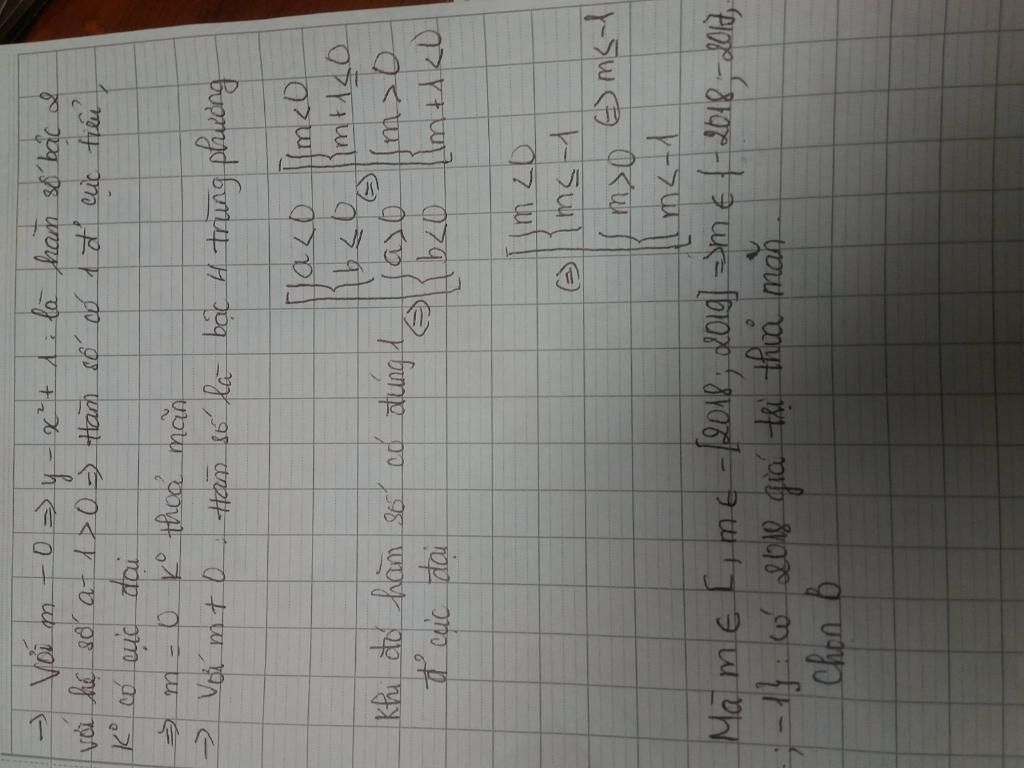 → Với m - 0 => y - x² + 1 : là hàm số bậc 2
với hệ số a - 1 > 0 => Hàm số có 1 đ' cực tiểu,
K° có cực đại
=> m = 0 K° thoả mãn
→ Với m ≠ 0 : Hàm số là bậc 4 trùng phương
Khi đó hàm số có đúng 1 đ° cực đại
<=> [ { a < 0 { b ≤ 0 { a > 0 { b < 0 <=> [ { m < 0 { m + 1 ≤ 0 { m > 0 { m + 1 < 0
<=> [ { m < 0 { m ≤ -1 { m > 0 { m < -1 <=> m ≤ -1
Mà m ∈ [, m ∈ - [2018 ; 2019] => m ∈ { - 2018 ; - 2017, .
. ; -1} : có 2018 giá trị thoả mãn.
Chọn b